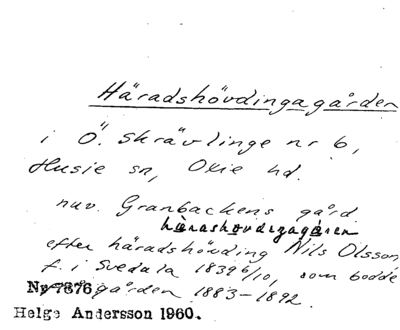 Häradshövdingagården
i Ö. Skrävlinge nr 6,
Husie sn, Oxie hd.
nuv. Granbackens gård
härashövdigagåren
efter häradshövding Nils Olsson,
f. i Svedala 1839 6/10, som bodde
gården 1883-1892.
Ny 7876
Helge Andersson 1960.